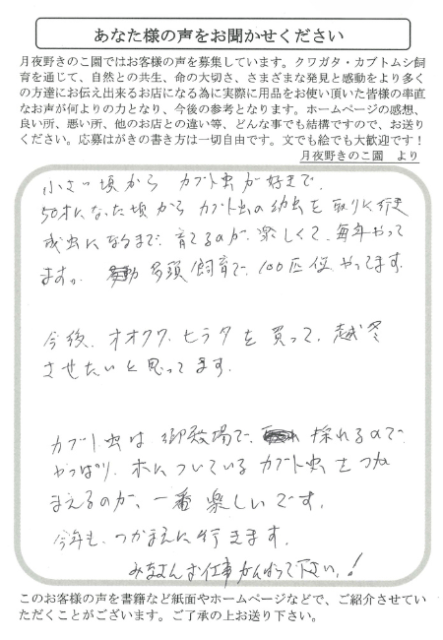 あなた様の声をお聞かせください
月夜野きのこ園ではお客様の声を募集しています。クワガタ・カブトムシ飼
育を通じて、自然との共生、命の大切さ、さまざまな発見と感動をより多く
の方達にお伝え出来るお店になる為に実際に用品をお使い頂いた皆様の率直
なお声が何よりの力となり、今後の参考となります。ホームページの感想、
良い所、悪い所、他のお店との違い等、どんな事でも結構ですので、お送り
ください。応募はがきの書き方は一切自由です。文でも絵でも大歓迎です！
月夜野きのこ園　より
小さい頃から カブト虫が好きで、
50才になった頃から カブト虫の幼虫を取りに行き
成虫になるまで、育てるのが、楽しくて、毎年やって
ますが、多頭飼育で、100匹位やってます。
今後、オオクワ、ヒラタを買って、越冬
させたいと思ってます。
カブト虫は御殿場で、採れるので
やっぱり、木についているカブト虫をつか
まえるのが、一番楽しいです。
今年も、つかまえに行きます。
みなさんお仕事がんばって下さい。！
このお客様の声を書籍など紙面やホームページなどで、ご紹介させてい
ただくことがございます。ご了承の上お送り下さい。